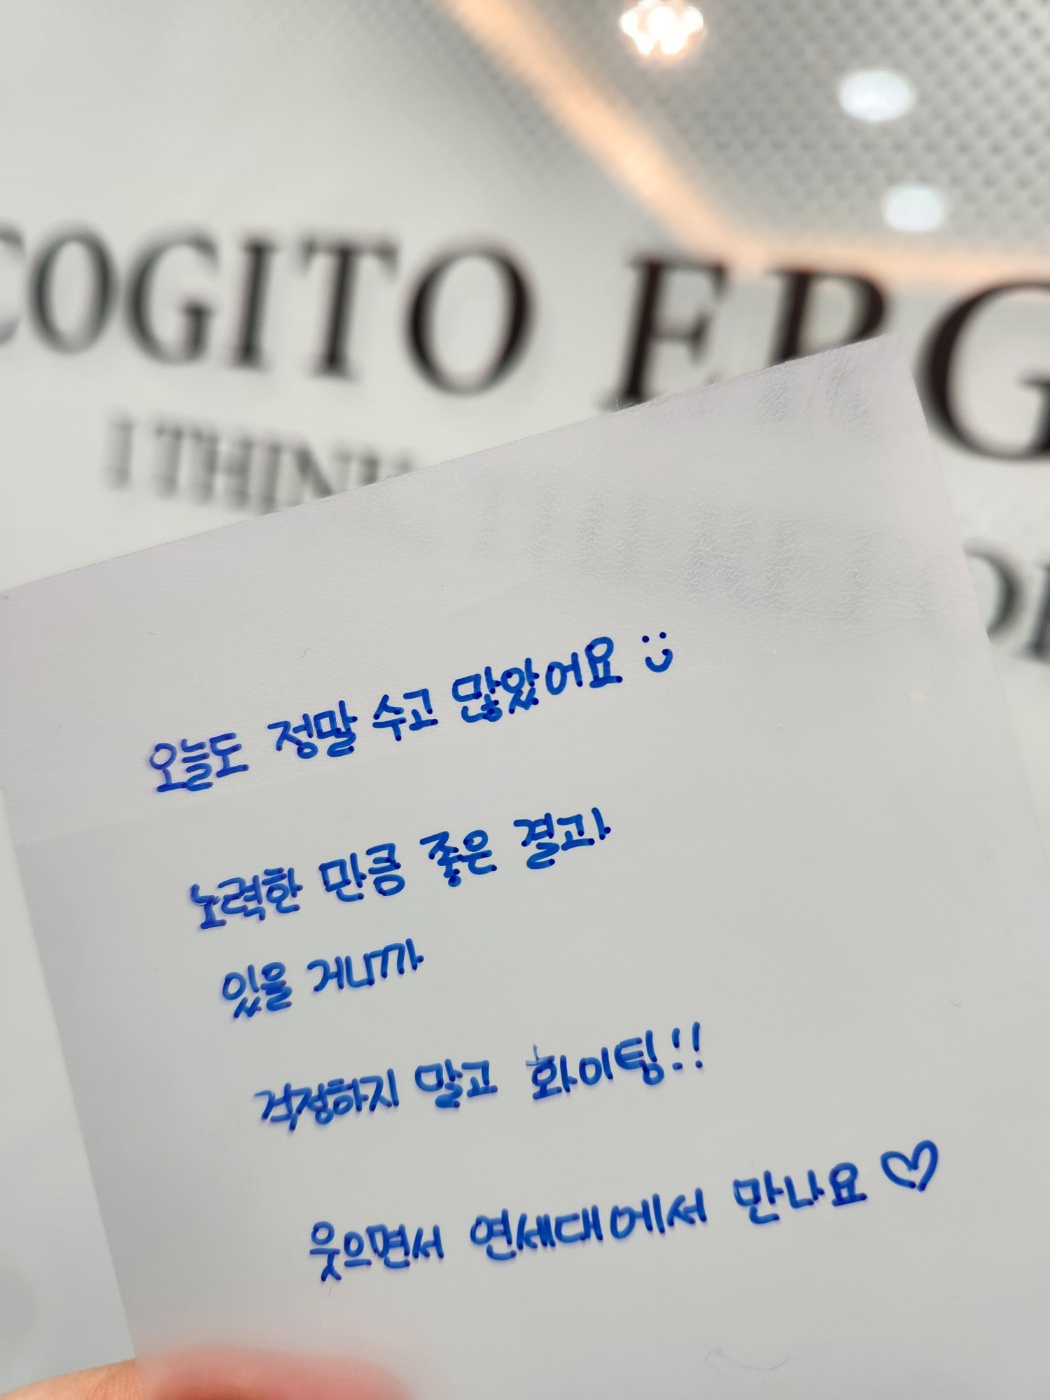 COGITO ERG
I THINK
오늘도 정말 수고 많았어요 :)
노력한 만큼 좋은 결과
있을 거니까
걱정하지 말고 화이팅!!
웃으면서 연세대에서 만나요 ♡